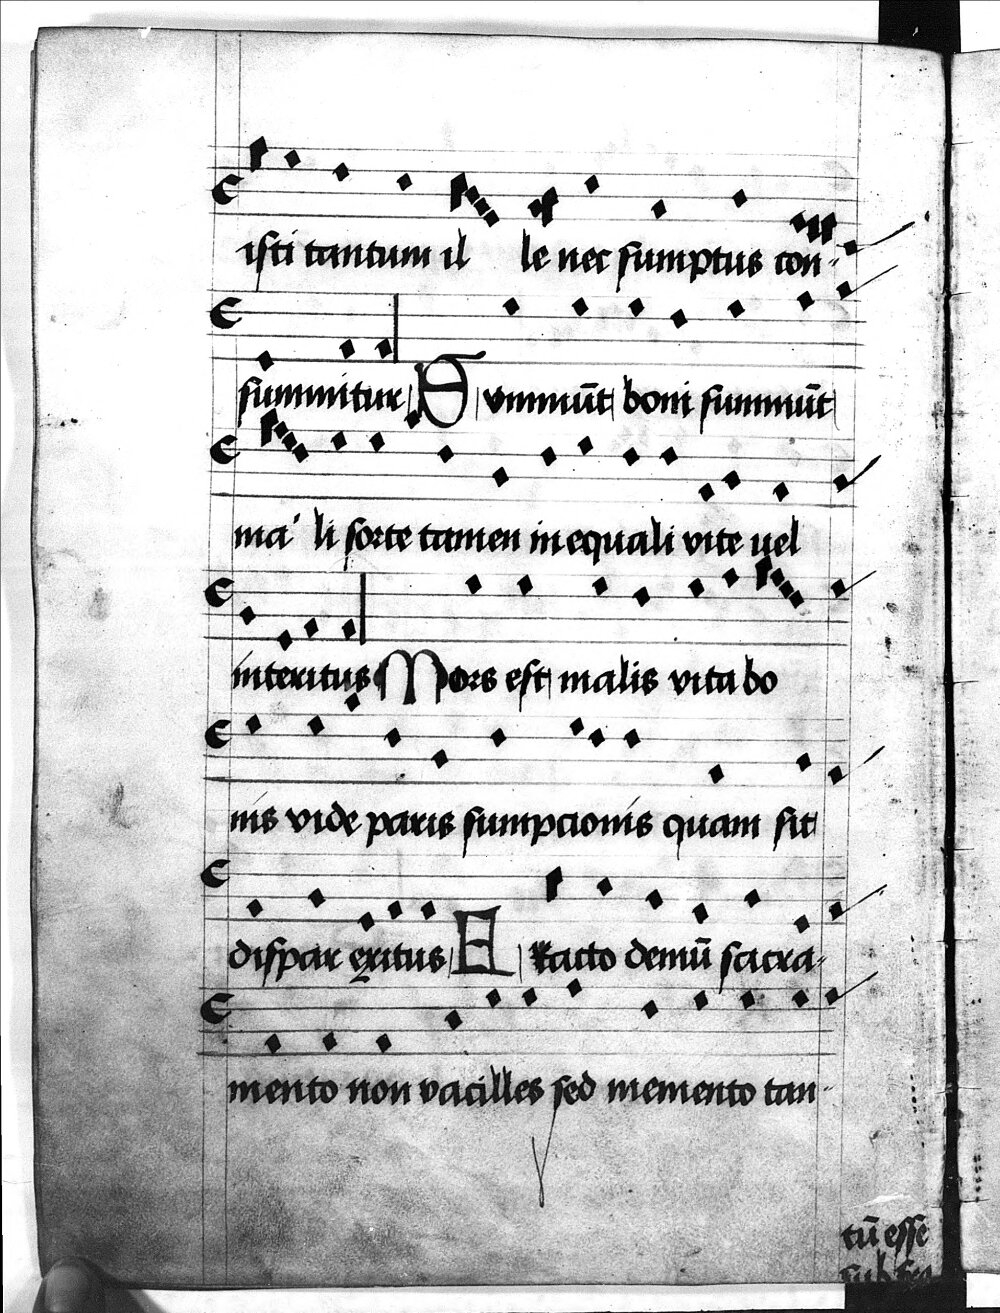 isti tantum il le nec sumptus con-
summitur Summūt boni summūt
ma li sorte tamen inequali vite uel
interitus Mors est malis vita bo
nis vide paris sumpcionis quam sit
dispar exitus Fracto demū sacra-
mento non vacilles sed memento tan-
tū esse